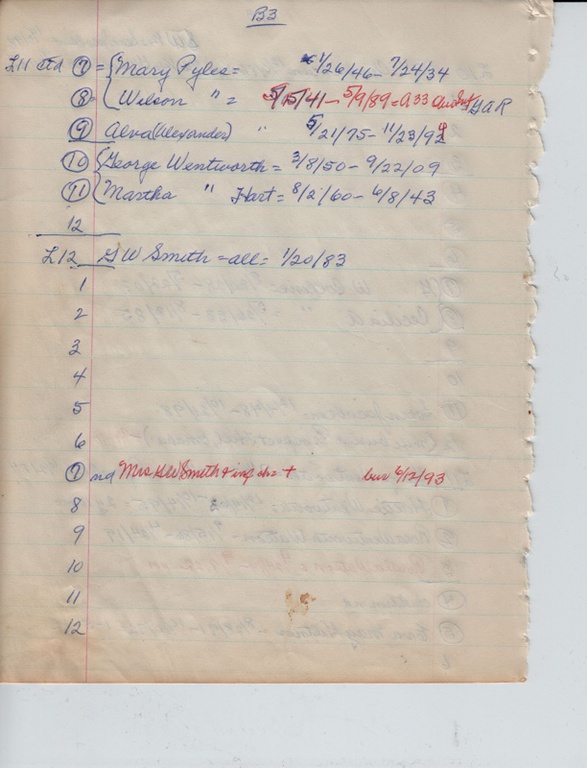 B3
L11 ctd 7 = { Mary Pyles = 1/26/46 - 7/24/34
8 { Wilson " = 5/15/41 - 5/9/89 = a 33 GAR
9 Alva (Alexander) " 5/21/75 - 11/23/92
10 { George Wentworth = 3/8/50 - 9/22/09
11 { Martha " Hart = 8/2/60 - 6/8/43
12
L12 GW Smith = all = 1/20/83
1
2
3
4
5
6
7 nd Mrs Smith + inf + bur 6/12/93
8
9
10
11
12